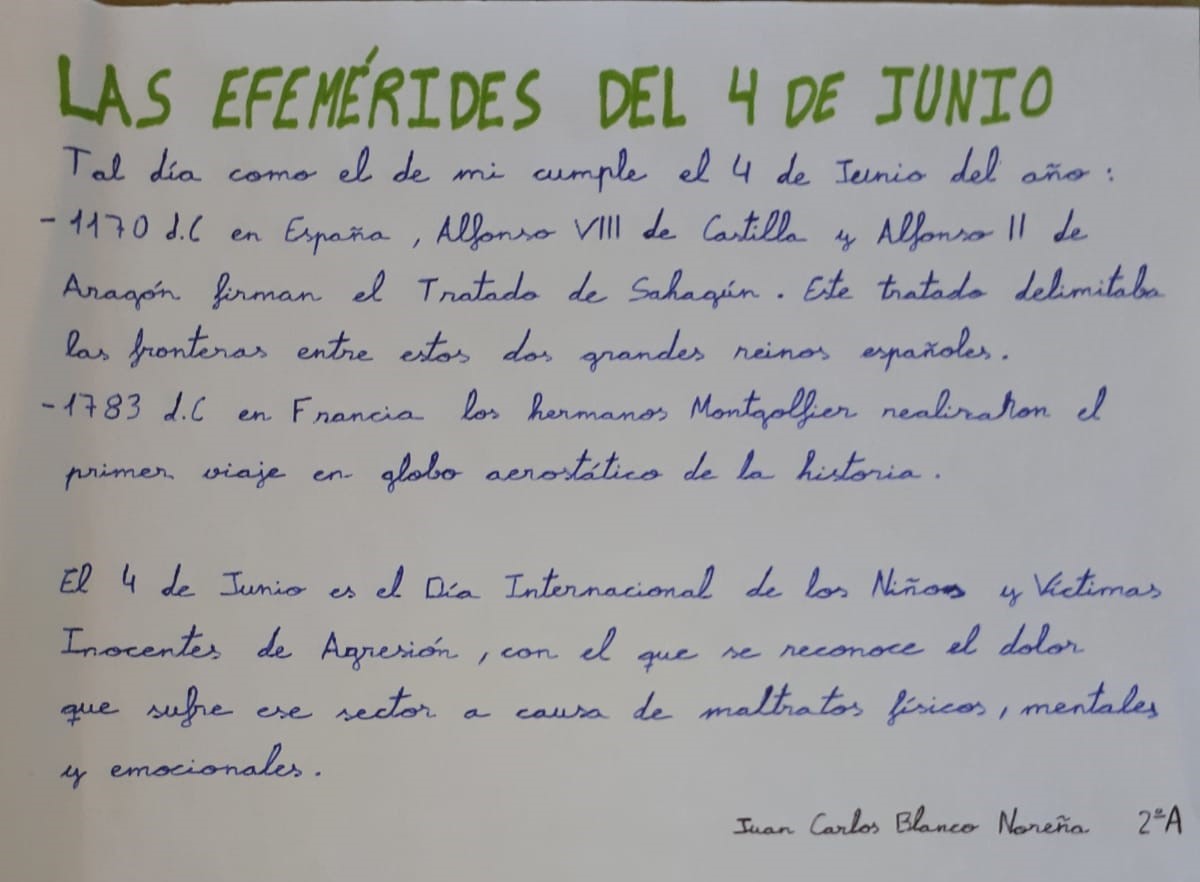 LAS EFEMÉRIDES DEL 4 DE JUNIO
Tal día como el de mi cumple el 4 de Junio del año:
- 1170 d.C en España, Alfonso VIII de Castilla y Alfonso II de
Aragón firman el Tratado de Sahagún. Este tratado delimitaba
las fronteras entre estos dos grandes reinos españoles.
- 1783 d.C en Francia los hermanos Montgolfier realizaron el
primer viaje en globo aerostático de la historia.
El 4 de Junio es el Día Internacional de los Niños y Víctimas
Inocentes de Agresión, con el que se reconoce el dolor
que sufre ese sector a causa de maltratos físicos, mentales
y emocionales.
Juan Carlos Blanco Noreña 2ºA